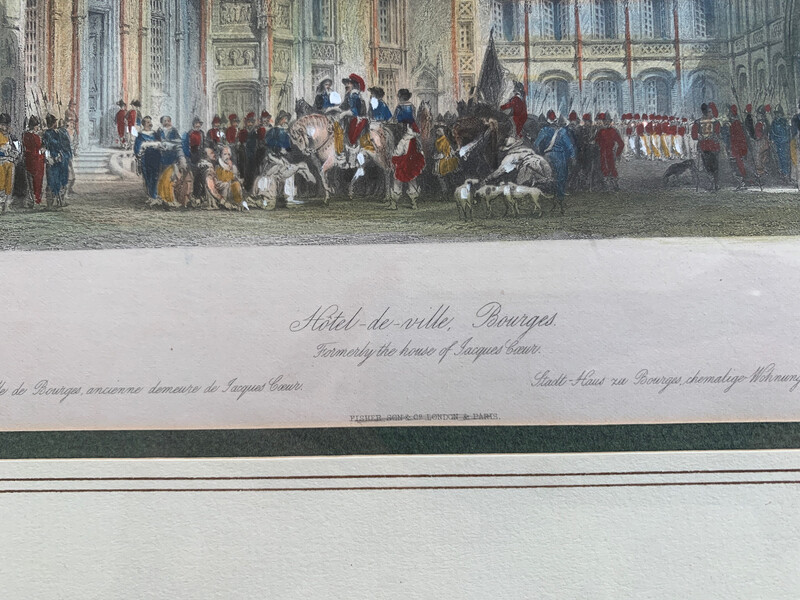 Hôtel-de-ville, Bourges.
Formerly the house of Jacques Cœur.
de Bourges, ancienne demeure de Jacques Cœur.
Stadt-Haus zu Bourges, chemalige Wohnung
FISHER, SON & Co. LONDON & PARIS.